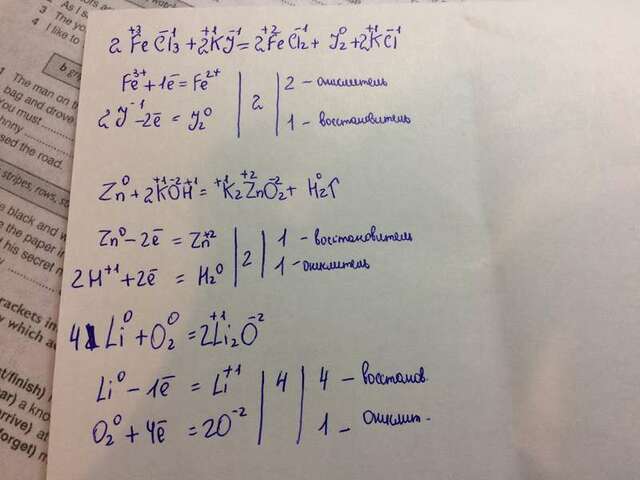 As I s
3 The yo
4 I like to
b gr
1 The man on t
bag and drove
You must
hnny
ssed the road.
stripes, rows, s
e black and w
e the paper in
his secret r
rackets in
y which ac
et/finish) i
ar) a kno
rrive) at
orget) n
2 Fe⁺³Cl₃⁻¹ + 2K⁺¹J⁻¹ = 2Fe⁺²Cl₂⁻¹ + J₂⁰ + 2K⁺¹Cl⁻¹
Fe³⁺ + 1ē = Fe²⁺ | 2 | 2 - окислитель
2J⁻¹ - 2ē = J₂⁰ | | 1 - восстановитель
Zn⁰ + 2K⁺¹O⁻²H⁺¹ = ⁺¹K₂Zn⁺²O₂⁻² + H₂⁰↑
Zn⁰ - 2ē = Zn⁺² | 2 | 1 - восстановитель
2H⁺¹ + 2ē = H₂⁰ | | 1 - окислитель
4Li⁰ + O₂⁰ = 2Li₂⁺¹O⁻²
Li⁰ - 1ē = Li⁺¹ | 4 | 4 - восстанов.
O₂⁰ + 4ē = 2O⁻² | | 1 - Окислит.